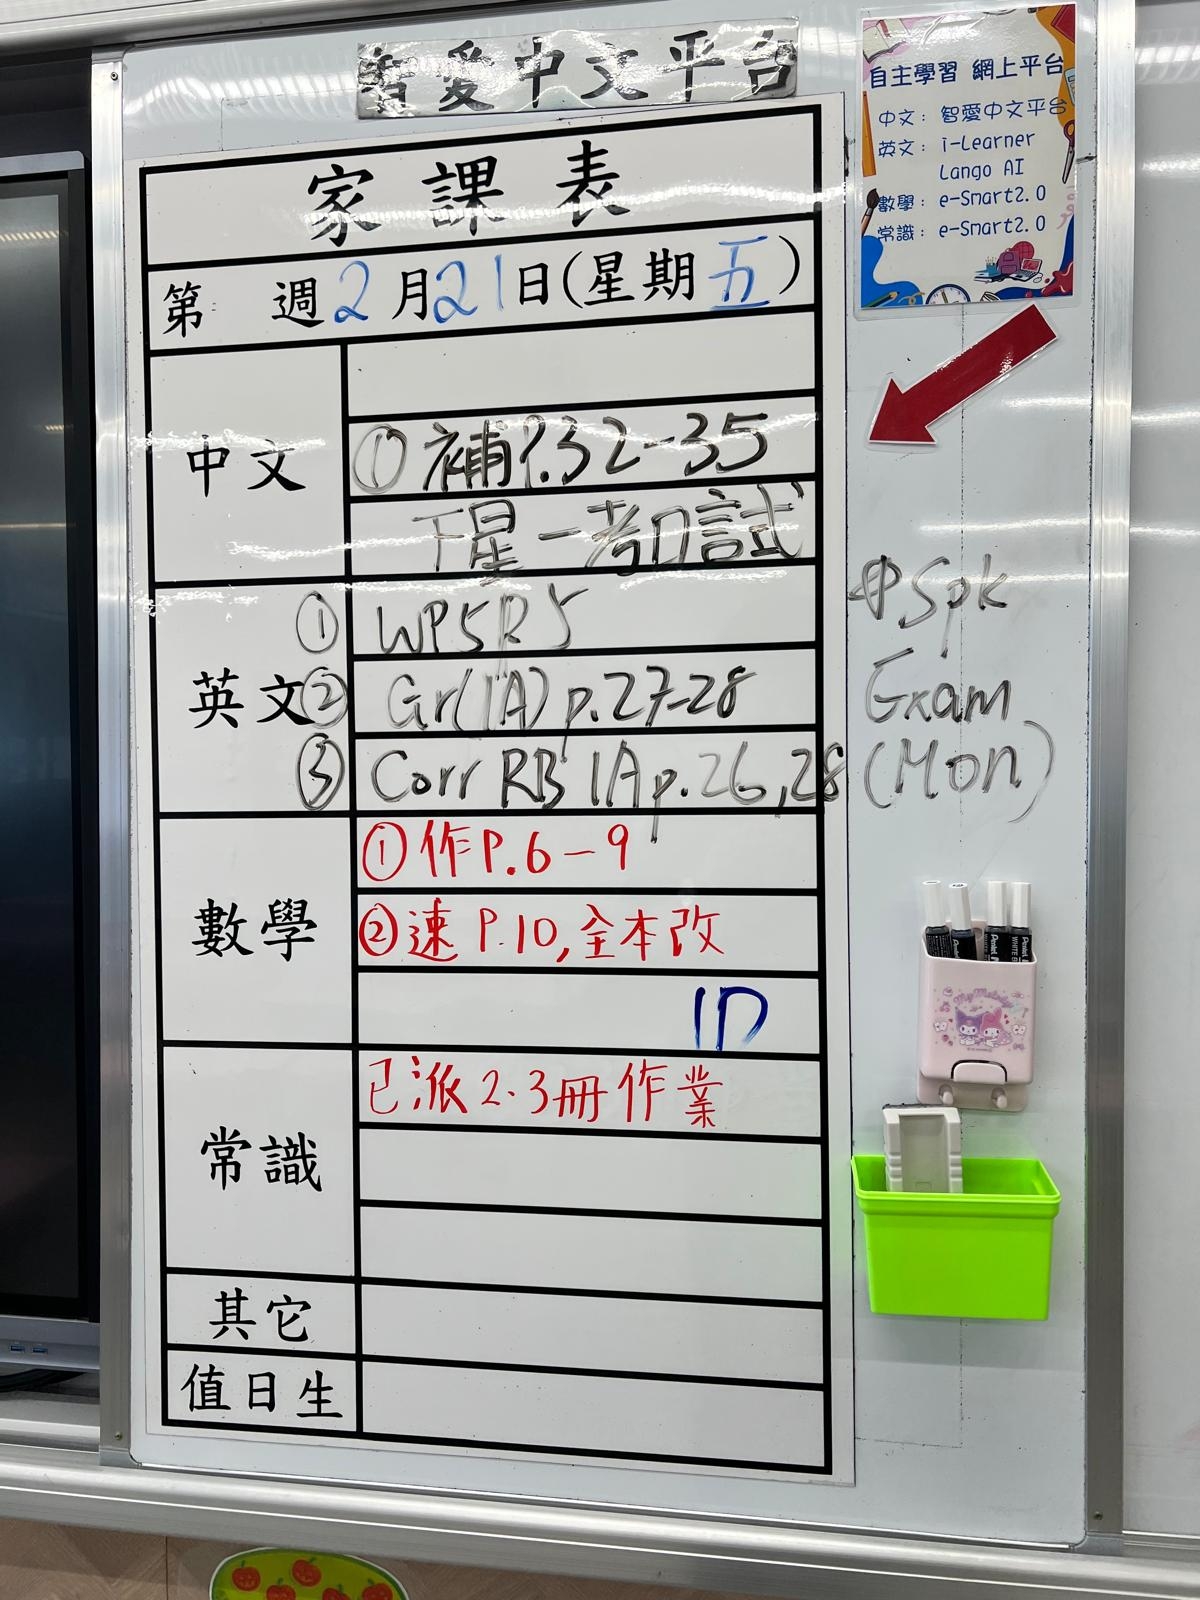 智愛中文平台
自主學習 網上平台
中文: 智愛中文平台
英文: i-Learner
Lango AI
數學: e-Smart2.0
常識: e-Smart2.0
家課表
第 週2月21日(星期五)
中文
① 補P.32-35
下星一考口試
英文
① WP5R5
② Gr(1A) p.27-28
③ Corr RB 1A p.26,28
Spk
Exam
(Mon)
數學
① 作P.6-9
② 速P.10,全本改
1D
常識
已派2.3冊作業
其它
值日生
My Melody
Pentel